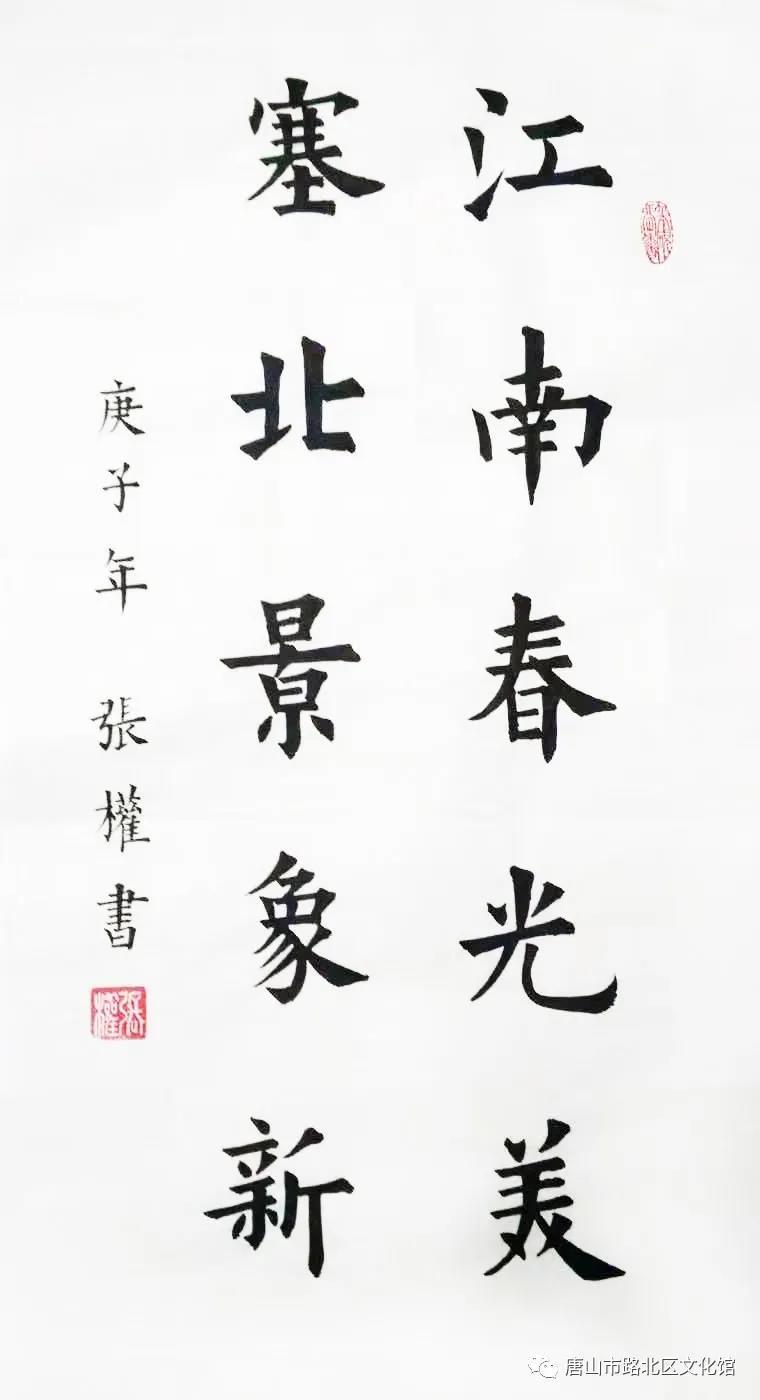 江南春光美
塞北景象新
庚子年 張權書
張權
唐山市路北区文化馆